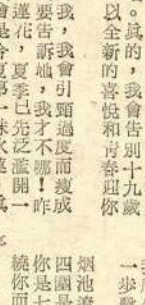 。真的，我會告別十九歲
以全新的喜悅和青春迎你
我，我會引頸過度而瘦成
要告訴訕，我才不哪！昨
蓮花，夏季已先泛濫開一
一步
烟池
四圍是
你是七
繞你而